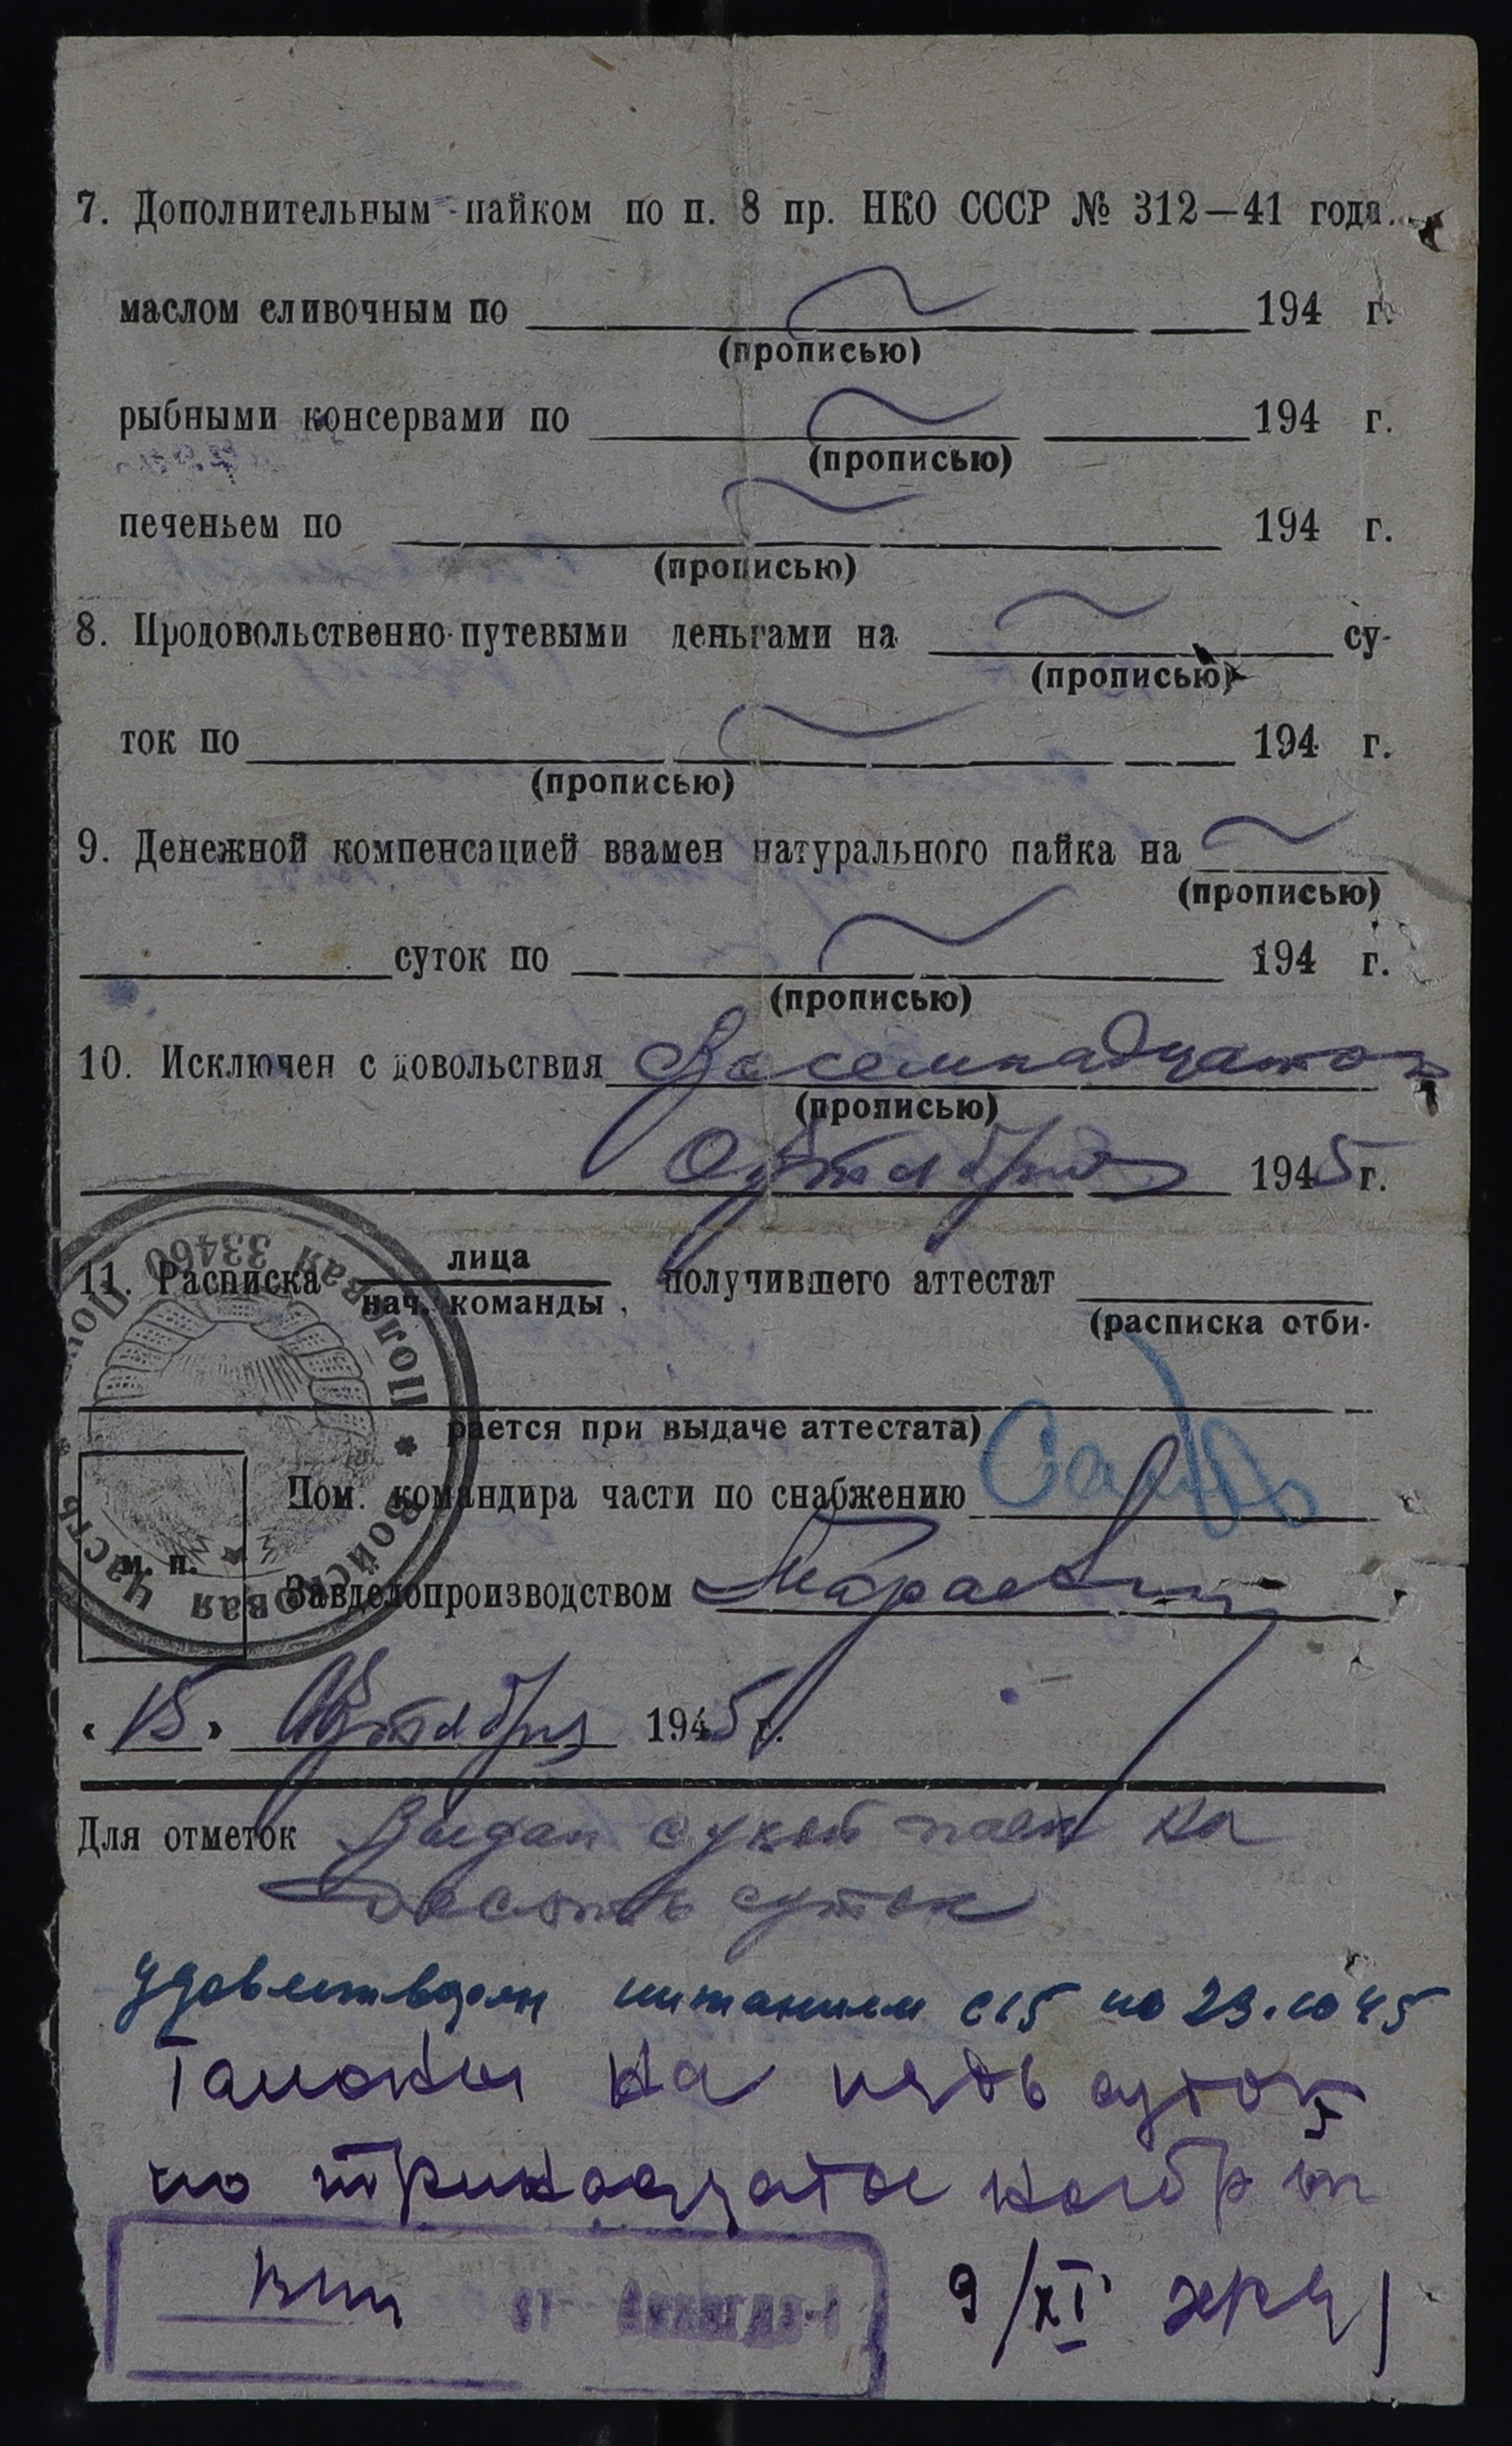 7. Дополнительным пайком по п. 8 пр. НКО СССР № 312—41 года.
маслом сливочным по 194 г.
(прописью)
рыбными консервами по 194 г.
(прописью)
печеньем по 194 г.
(прописью)
8. Продовольственно-путевыми деньгами на су-
(прописью)
ток по 194 г.
(прописью)
9. Денежной компенсацией взамен натурального пайка на
(прописью)
суток по 194 г.
(прописью)
10. Исключен с довольствия Восемнадцатого
(прописью)
Октября 1945 г.
11. Расписка лица
нач. команды, получившего аттестат
(расписка отби-
рается при выдаче аттестата)
Пом. командира части по снабжению
м. п.
Завделопроизводством
Войсковая Часть * Полевая 33460
«15» Октября 1945 г.
Для отметок Выдан сухой паек на
десять суток
удовлетворен питанием с 15 по 23.10 45
Талоны на пять суток
по тринадцатое ноября
9/XI